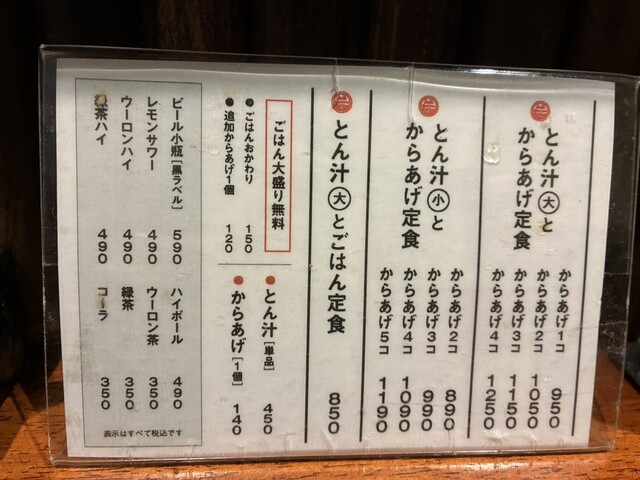 とん汁大と
からあげ定食
からあげ1コ 950
からあげ2コ 1050
からあげ3コ 1150
からあげ4コ 1250
とん汁小と
からあげ定食
からあげ2コ 890
からあげ3コ 990
からあげ4コ 1090
からあげ5コ 1190
とん汁大とごはん定食 850
ごはん大盛り無料
●ごはんおかわり 150
●追加からあげ1個 120
●とん汁[単品] 450
●からあげ[1個] 140
ビール小瓶[黒ラベル] 590
レモンサワー 490
ウーロンハイ 490
緑茶ハイ 490
ハイボール 490
ウーロン茶 350
緑茶 350
コーラ 350
表示はすべて税込です